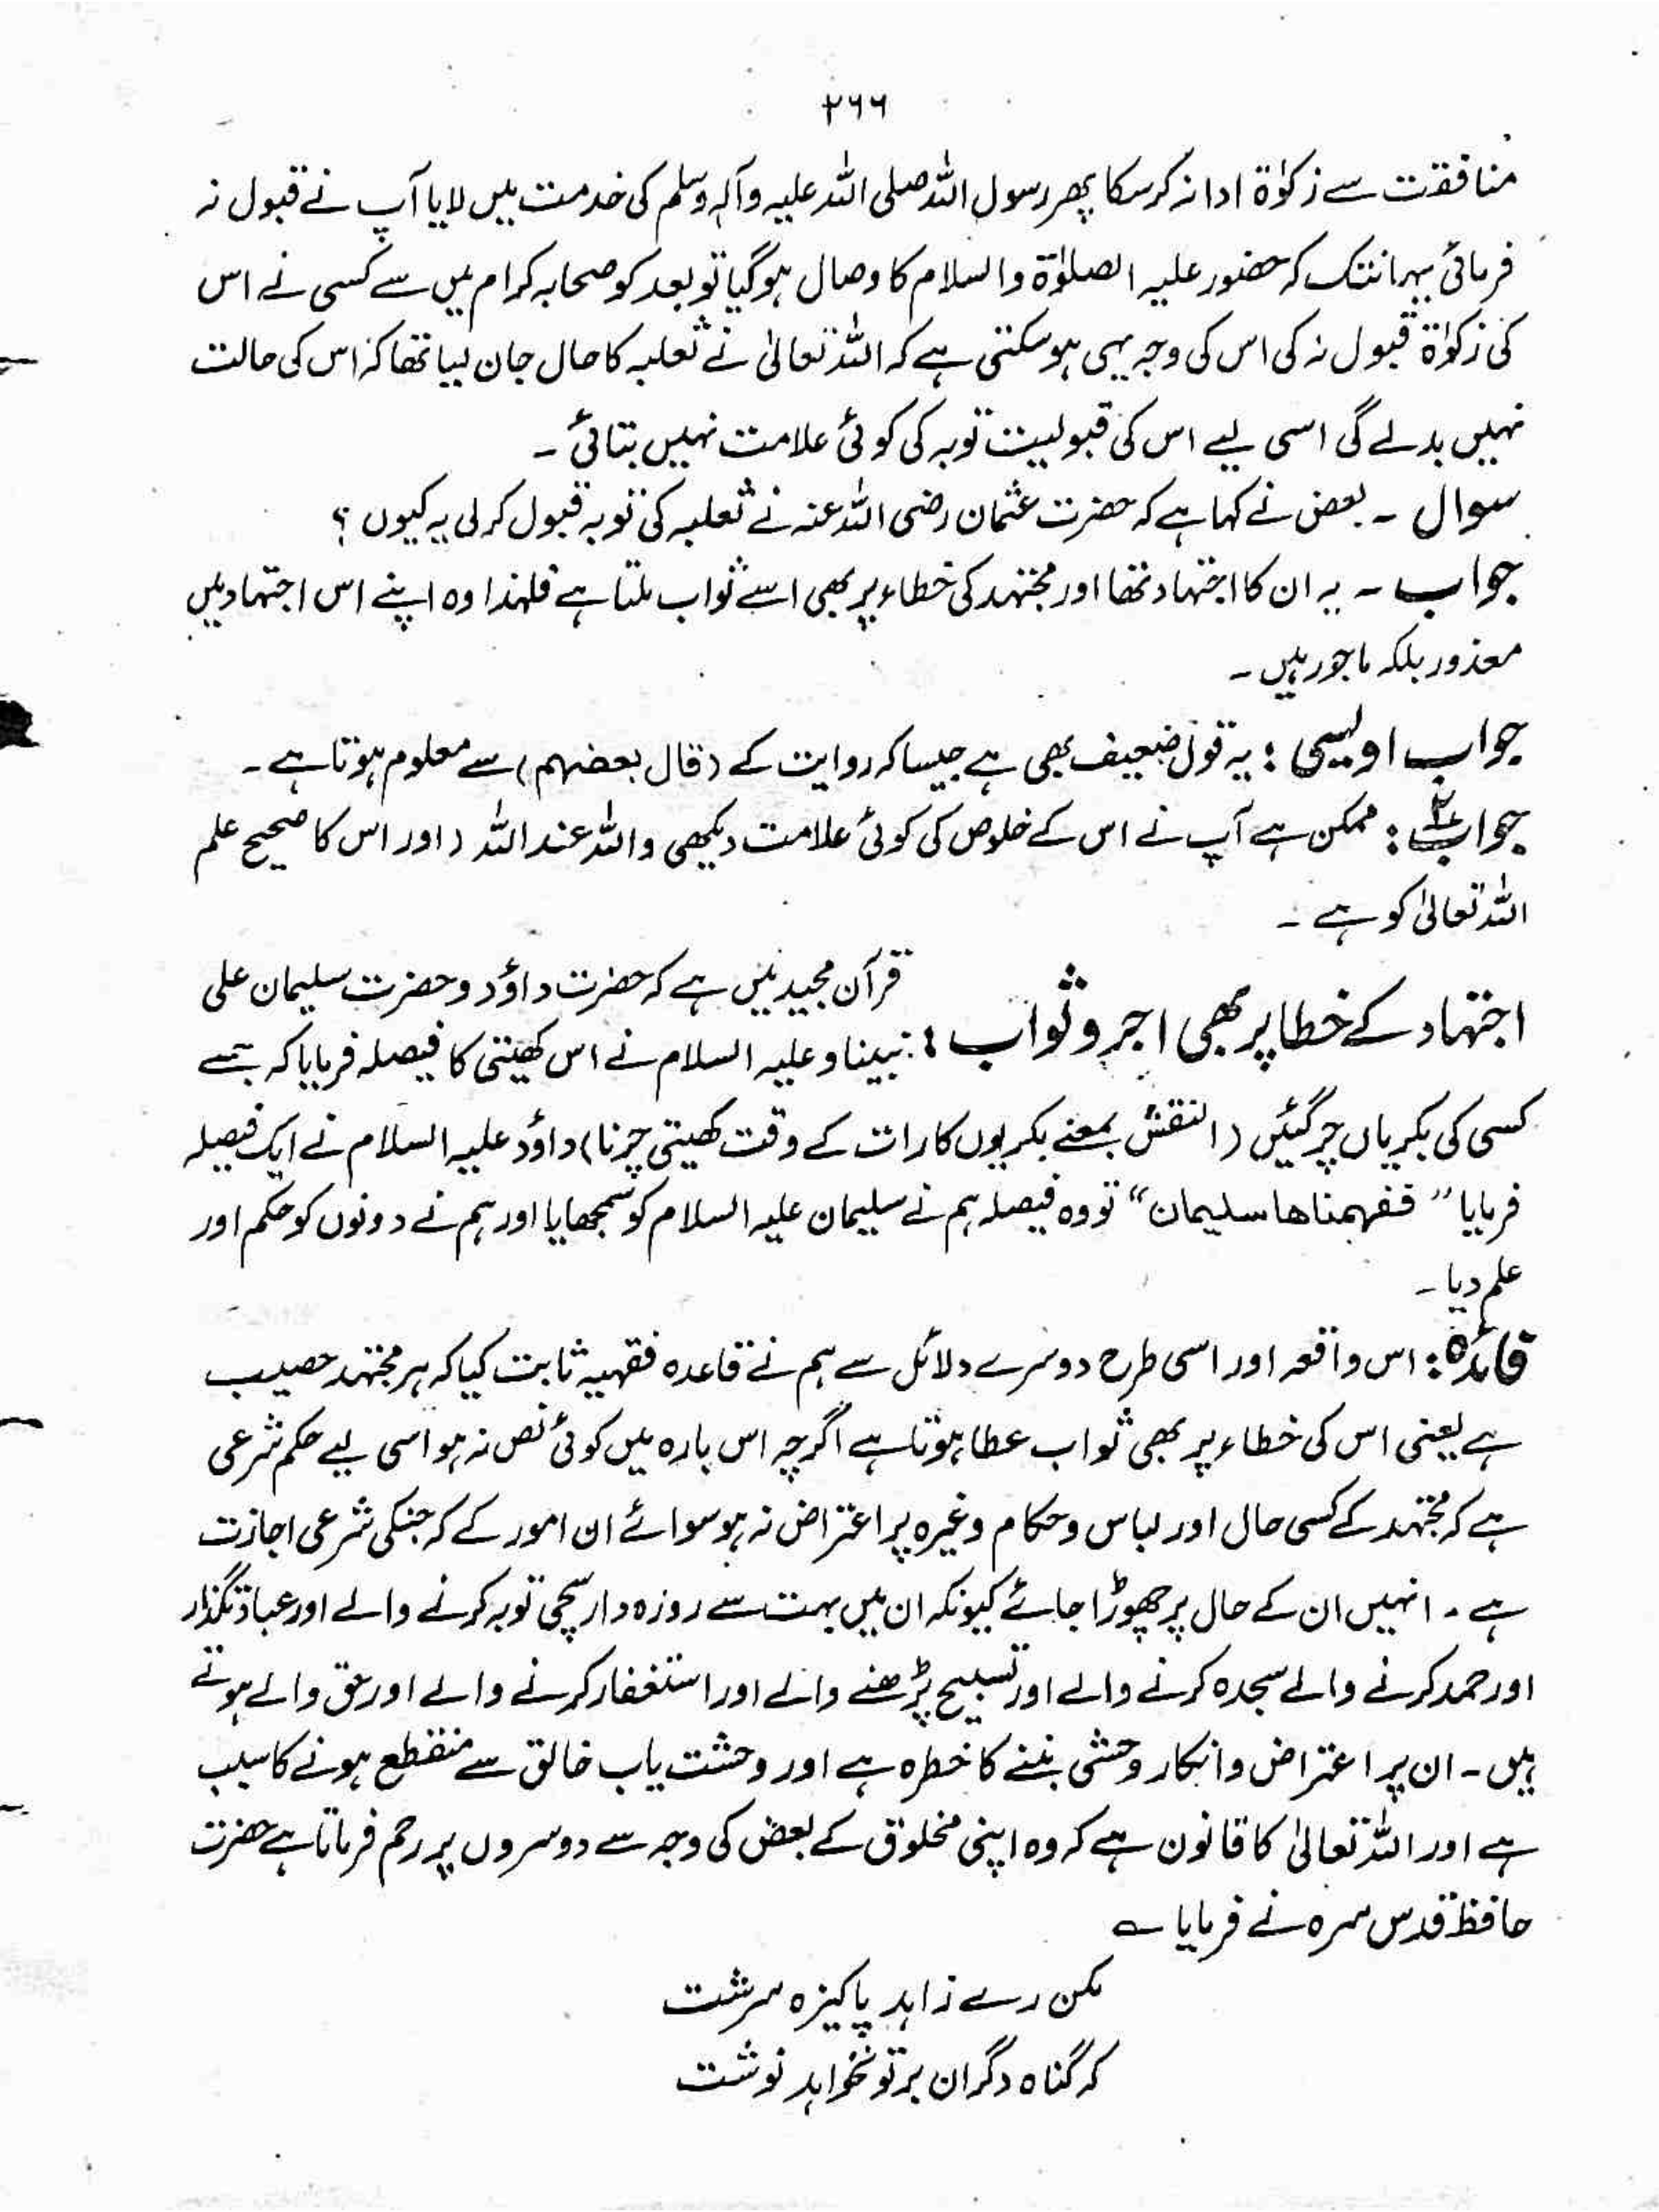 ۲۶۶
منافقت سے زکوٰۃ ادا نہ کرسکا پھر رسول اللہ صلی اللہ علیہ وآلہٖ وسلم کی خدمت میں لایا آپ نے قبول نہ
فرمائی یہانتک کہ حضور علیہ الصلوٰۃ والسلام کا وصال ہوگیا تو بعد کو صحابہ کرام میں سے کسی نے اس
کی زکوٰۃ قبول نہ کی اس کی وجہ یہی ہوسکتی ہے کہ اللہ تعالیٰ نے ثعلبہ کا حال جان لیا تھا کہ اس کی حالت
نہیں بدلے گی اسی لیے اس کی قبولیت توبہ کی کوئی علامت نہیں بتائی ۔
سوال ۔ بعض نے کہا ہے کہ حضرت عثمان رضی اللہ عنہ نے ثعلبہ کی توبہ قبول کرلی یہ کیوں ؟
جواب ۔ یہ ان کا اجتہاد تھا اور مجتہد کی خطاء پر بھی اسے ثواب ملتا ہے فلہٰذا وہ اپنے اس اجتہاد میں
معذور بلکہ ماجور ہیں ۔
جواب اویسی : یہ قول ضعیف بھی ہے جیسا کہ روایت کے (قال بعضہم) سے معلوم ہوتا ہے ۔
جواب ۲ : ممکن ہے آپ نے اس کے خلوص کی کوئی علامت دیکھی واللہ عند اللہ (اور اس کا صحیح علم
اللہ تعالیٰ کو ہے ۔
اجتہاد کے خطا پر بھی اجر و ثواب : قرآن مجید میں ہے کہ حضرت داؤد و حضرت سلیمان علی
نبینا و علیہ السلام نے اس کھیتی کا فیصلہ فرمایا کہ جسے
کسی کی بکریاں چر گئیں (النقش بمعنے بکریوں کا رات کے وقت کھیتی چرنا) داؤد علیہ السلام نے ایک فیصلہ
فرمایا ”ففہمناھا سلیمان“ تو وہ فیصلہ ہم نے سلیمان علیہ السلام کو سمجھایا اور ہم نے دونوں کو حکم اور
علم دیا ۔
فائدہ : اس واقعہ اور اسی طرح دوسرے دلائل سے ہم نے قاعدہ فقہیہ ثابت کیا کہ ہر مجتہد حصیب
ہے یعنی اس کی خطاء پر بھی ثواب عطا ہوتا ہے اگرچہ اس بارہ میں کوئی نص نہ ہو اسی لیے حکم شرعی
ہے کہ مجتہد کے کسی حال اور لباس و حکام وغیرہ پر اعتراض نہ ہو سوائے ان امور کے کہ جنکی شرعی اجازت
ہے ۔ انہیں ان کے حال پر چھوڑا جائے کیونکہ ان میں بہت سے روزہ دار سچی توبہ کرنے والے اور عبادتگذار
اور حمد کرنے والے سجدہ کرنے والے اور تسبیح پڑھنے والے اور استغفار کرنے والے اور حق والے ہوتے
ہیں ۔ ان پر اعتراض و انکار وحشی بننے کا خطرہ ہے اور وحشت یاب خالق سے منقطع ہونے کا سبب
ہے اور اللہ تعالیٰ کا قانون ہے کہ وہ اپنی مخلوق کے بعض کی وجہ سے دوسروں پر رحم فرماتا ہے حضرت
حافظ قدس سرہ نے فرمایا ؎
مکن رے زاہد پاکیزہ سرشت
کہ گناہ دگران بر تو نخواہد نوشت